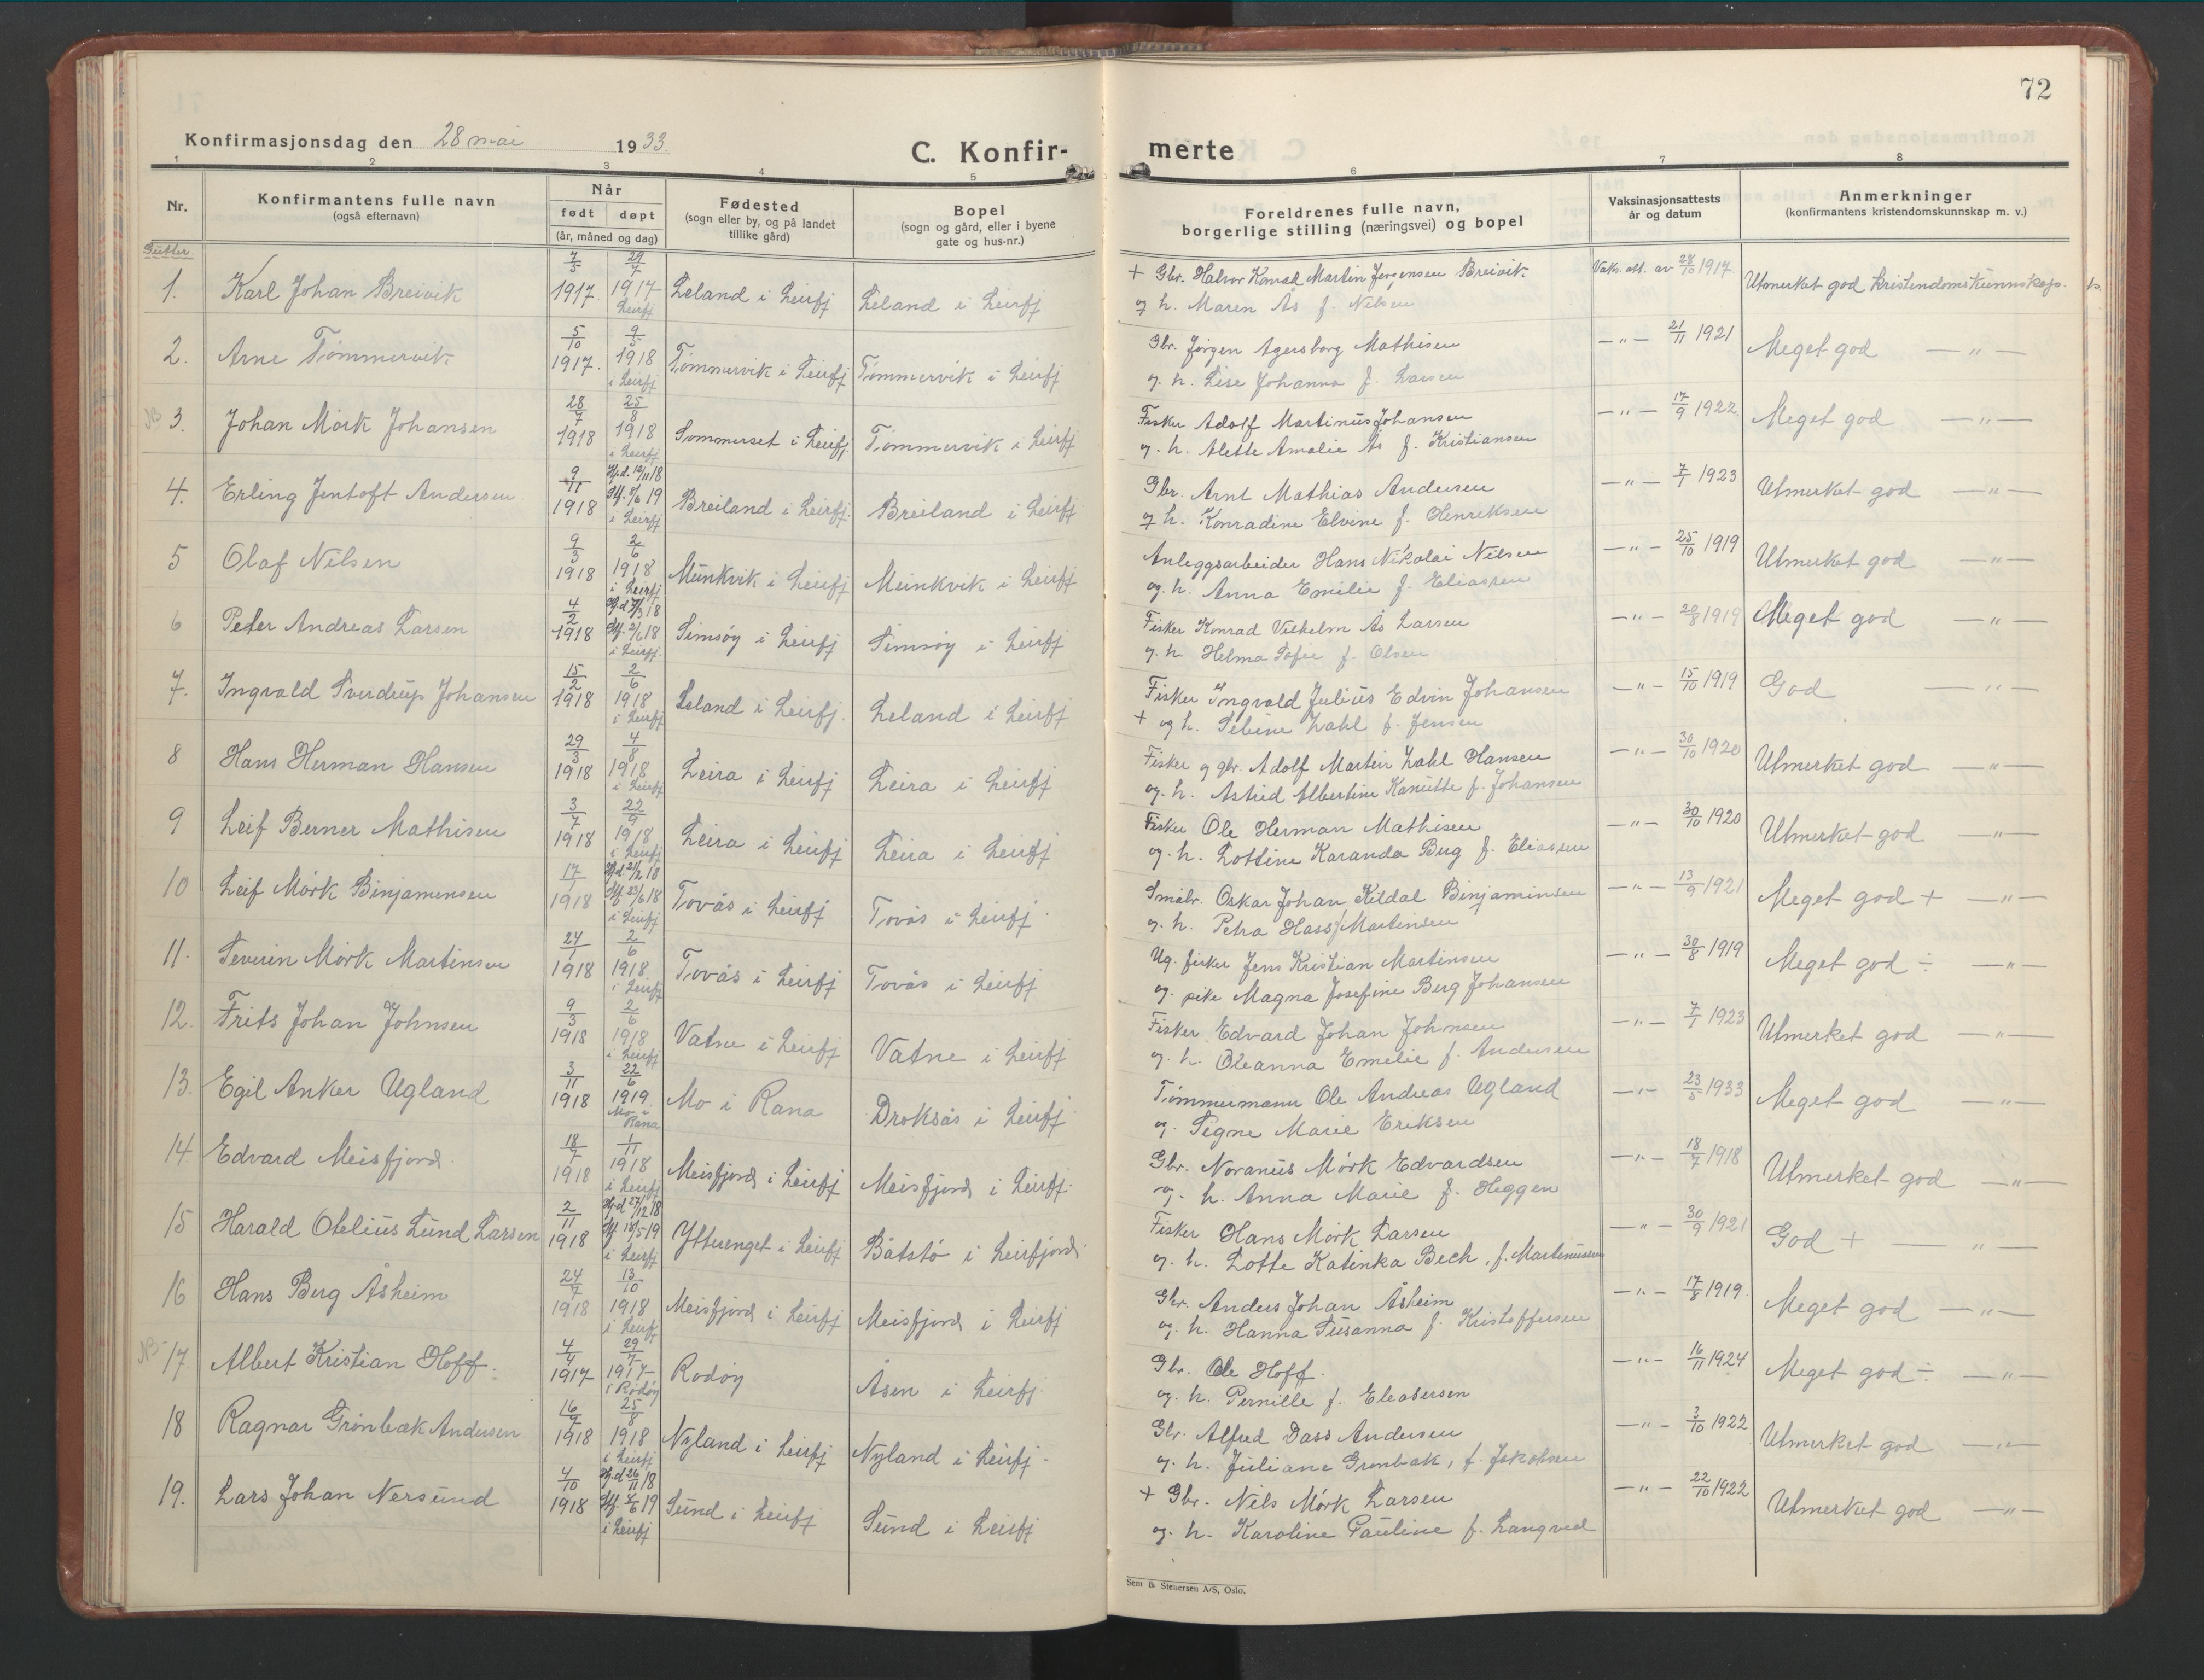 72
Konfirmasjonsdag den 28 mai 1933.
C. Konfirmerte
1 2 3 4 5 6 7 8
Nr. | Konfirmantens fulle navn (også efternavn) | Når født døpt (år, måned og dag) | Fødested (sogn eller by, og på landet tillike gård) | Bopel (sogn og gård, eller i byene gate og hus-nr.) | Foreldrenes fulle navn, borgerlige stilling (næringsvei) og bopel | Vaksinasjonsattests år og datum | Anmerkninger (konfirmantens kristendomskunnskap m. v.)
Gutter.
1. Karl Johan Breivik | 7/5 1917. | 29/7 1917 Leirfj | Leland i Leirfj | Leland i Leirfj | + Gbr. Halvor Konrad Martin Jørgensen Breivik | Vaks. att. av 28/10 1917 | Utmerket god kristendomskunnskap.
og h. Maren Ås f. Nilsen
2. Arne Tømmervik | 5/10 1917. | 9/5 1918 i Leirfj | Tømmervik i Leirfj | Tømmervik i Leirfj | Gbr. Jørgen Agersborg Mathisen | —„— 21/11 1921 | Meget god —„—
og h. Lise Johanna f. Larsen
NB 3. Johan Mørk Johansen | 28/7 1918 | 25/8 1918 i Leirfj | Sommerset i Leirfj. | Tømmervik i Leirfj | Fisker Adolf Martinus Johansen | —„— 17/9 1922 | Meget god —„—
og h. Alette Amalie Ås f. Kristiansen
4. Erling Jentoft Andersen | 9/11 1918 | Hjd. 12/11 18 Stf. 9/6 19 i Leirfj | Breiland i Leirfj. | Breiland i Leirfj | Gbr. Arnt Mathias Andersen | —„— 7/1 1923 | Utmerket god —„—
og h. Konradine Elvine f. Henriksen
5 Olaf Nilsen | 9/3 1918 | 2/6 1918 i Leirfj | Munkvik i Leirfj | Munkvik i Leirfj | Anleggsarbeider Hans Nikolai Nilsen | —„— 25/10 1919 | Utmerket god —„—
og h. Anna Emilie f. Eliassen
6 Peter Andreas Larsen | 4/2 1918 | Hjd 7/3 18 Stf. 2/6 18 i Leirfj. | Simsøy i Leirfj | Simsøy i Leirfj | Fisker Konrad Vilhelm Ås Larsen | —„— 20/8 1919 | Meget god —„—
og h. Helma Sofie f. Olsen
7. Ingvald Sverdrup Johansen | 15/2 1918 | 2/6 1918 i Leirfj | Leland i Leirfj. | Leland i Leirfj | Fisker Ingvald Julius Edvin Johansen | —„— 15/10 1919 | God —„—
+ og h. Sebine Zahl f. Jensen
8 Hans Herman Hansen | 29/3 1918 | 4/8 1918 i Leirfj | Leira i Leirfj | Leira i Leirfj | Fisker og gbr. Adolf Martin Zahl Hansen | —„— 30/10 1920 | Utmerket god —„—
og h. Astrid Albertine Kanutte f. Johansen
9 Leif Berner Mathisen | 3/7 1918 | 22/9 1918 i Leirfj | Leira i Leirfj | Leira i Leirfj | Fisker Ole Herman Mathisen | —„— 30/10 1920 | Utmerket god —„—
og h. Lottine Karanda Berg f. Eliassen
10 Leif Mørk Binjamensen | 17/1 1918 | Hjd 21/2 18 Stf 23/6 18 i Leirfj | Tovås i Leirfj | Tovås i Leirfj. | Småbr. Oskar Johan Kildal Binjaminsen | —„— 13/9 1921 | Meget god + —„—
og h. Petra Hass f Martinsen
11. Severin Mørk Martinsen | 24/1 1918 | 2/6 1918. i Leirfj | Tovås i Leirfj | Tovås i Leirfj | Ug. fisker Jens Kristian Martinsen | —„— 30/8 1919 | Meget god ÷ —„—
og pike Magna Josefine Berg Johansen
12. Frits Johan Johnsen | 9/3 1918 | 2/6 1918 i Leirfj | Vatne i Leirfj | Vatne i Leirfj | Fisker Edvard Johan Johnsen | —„— 7/1 1923 | Utmerket god —„—
og h. Oleanna Emelie f. Andersen
13. Egil Anker Ugland | 3/11 1918 | 22/6 1919 Mo i Rana | Mo i Rana | Droksås i Leirfj | Tømmermann Ole Andreas Ugland | —„— 23/5 1933 | Meget god —„—
og Signe Marie Eriksen
14 Edvard Meisfjord | 18/7 1918 | 1/11 1918 i Leirfj | Meisfjord i Leirfj | Meisfjord i Leirfj. | Gbr. Noranus Mørk Edvardsen | —„— 18/7 1918 | Utmerket god —„—
og h. Anna Marie f. Heggen
15 Harald Otelius Lund Larsen | 2/11 1918 | Hjd 27/12 18 Stf 18/5 19 i Leirfj | Ytterenget i Leirfj | Båtstø i Leirfjord | Fisker Hans Mørk Larsen | —„— 30/9 1921 | God + —„—
og h. Lotte Katinka Bech, f. Martinussen
16 Hans Berg Åsheim | 24/7 1918 | 13/10 1918 i Leirf | Meisfjord i Leirfj | Meisfjord i Leirfj | Gbr. Anders Johan Åsheim | —„— 17/8 1919. | Meget god —„—
og h. Hanna Susanna f. Kristoffersen
NB 17. Albert Kristian Hoff. | 4/4 1917 | 29/7 1917 i Rødøy | Rødøy | Åsen i Leirfj. | Gbr. Ole Hoff. | —„— 16/11 1924 | Meget god ÷ —„—
og h. Pernille f. Eleasersen
18 Ragnar Grønbæk Andersen | 16/7 1918 | 25/8 1918 i Leirfj | Nyland i Leirfj | Nyland i Leirfj. | Gbr. Alfred Dass Andersen | —„— 3/10 1922 | Utmerket god —„—
og h. Juliane Grønbæk, f. Jakobsen
19. Lars Johan Nersund | 4/10 1918 | Hjd 26/11 18 Stf. 9/6 19 i Leirfj | Sund i Leirfj | Sund i Leirfj | + Gbr. Nils Mørk Larsen | —„— 22/10 1922 | Utmerket god —„—
og h. Karoline Pauline f. Langved
Sem & Stenersen A/S, Oslo.